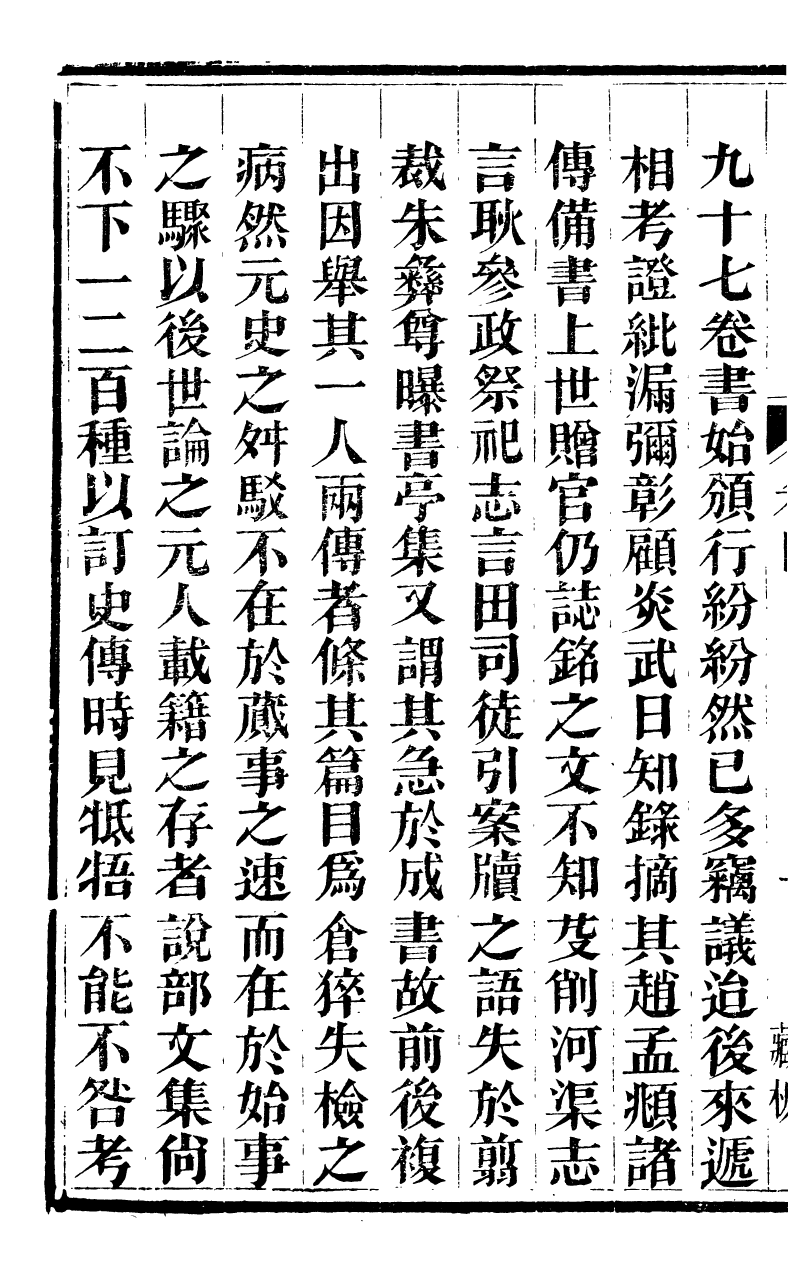 九十七卷書始頒行紛紛然已多竊議迨後來遞
相考證紕漏彌彰顧炎武日知錄摘其趙孟頫諸
傳備書上世贈官仍誌銘之文不知芟削河渠志
言耿參政祭祀志言田司徒引案牘之語失於翦
裁朱彝尊曝書亭集又謂其急於成書故前後複
出因舉其一人兩傳者條其篇目爲倉猝失檢之
病然元史之舛駁不在於蕆事之速而在於始事
之驟以後世論之元人載籍之存者說部文集尙
不下一二百種以訂史傳時見牴牾不能不咎考